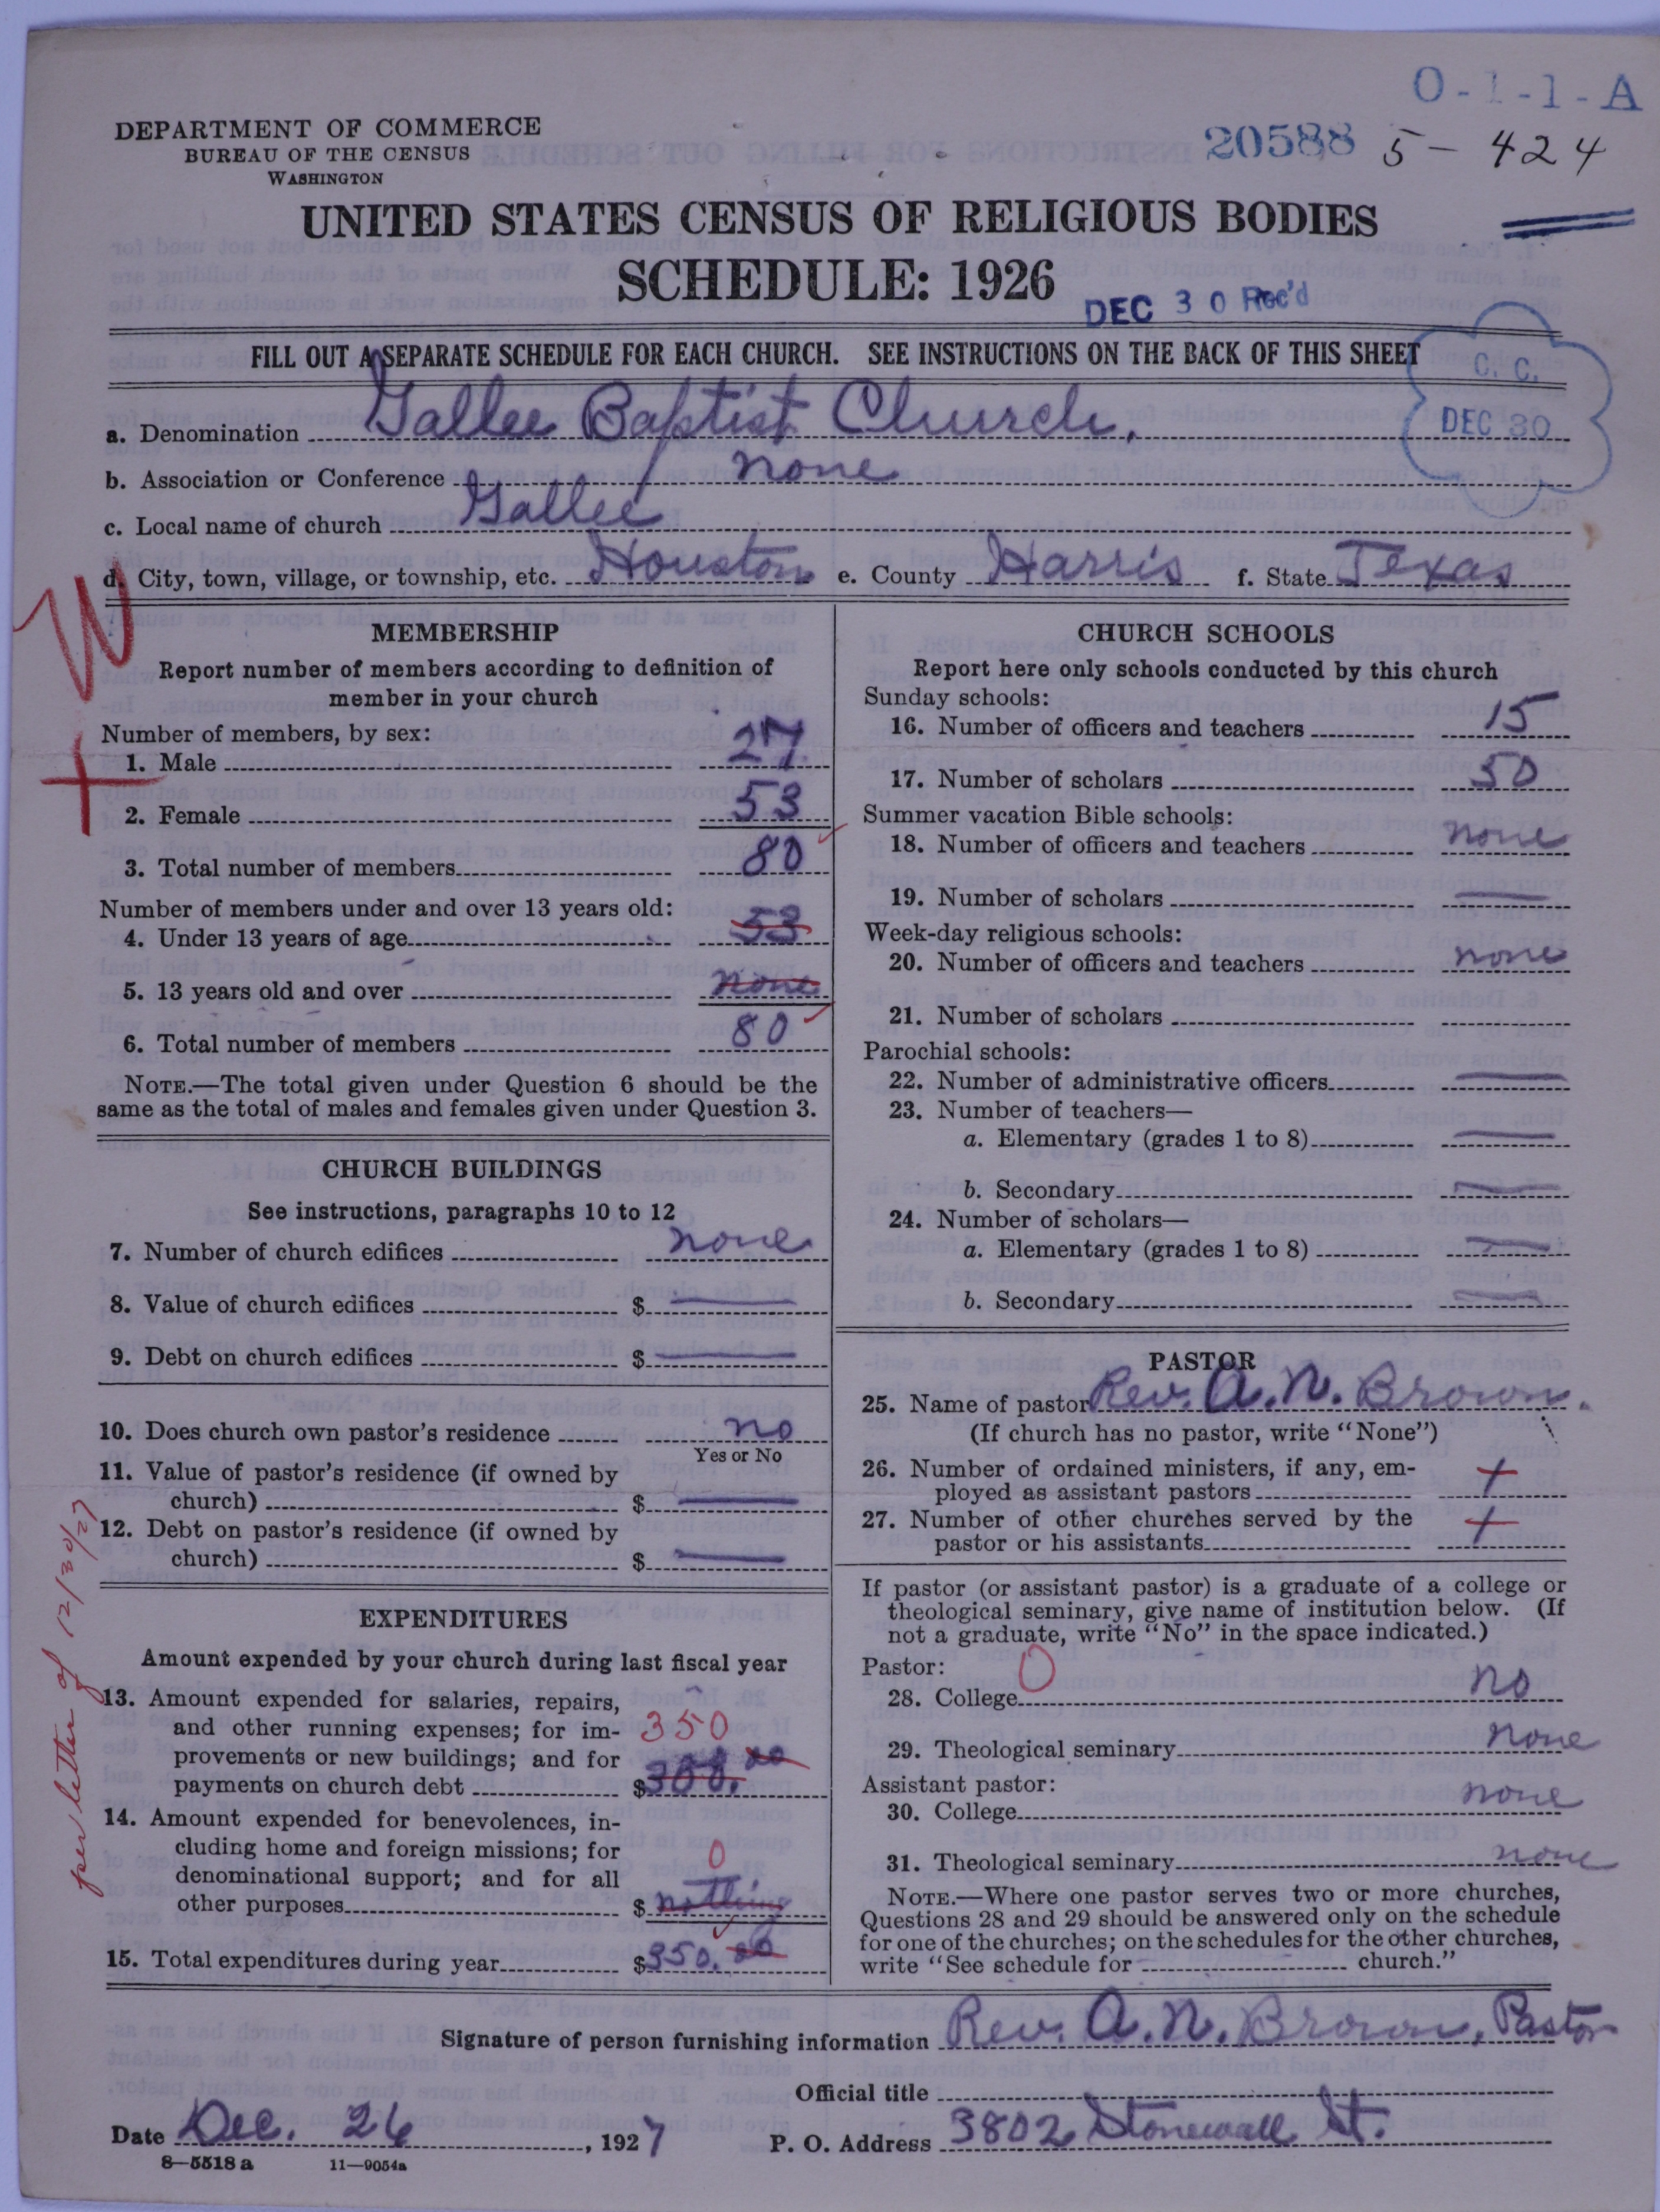 O-1-1-A
DEPARTMENT OF COMMERCE
BUREAU OF THE CENSUS
WASHINGTON
20588 5-424
UNITED STATES CENSUS OF RELIGIOUS BODIES
SCHEDULE: 1926
DEC 30 Rec'd
FILL OUT A SEPARATE SCHEDULE FOR EACH CHURCH. SEE INSTRUCTIONS ON THE BACK OF THIS SHEET
C. C.
DEC 30
a. Denomination Gallee Baptist Church.
b. Association or Conference none
c. Local name of church Gallee
d. City, town, village, or township, etc. Houston e. County Harris f. State Texas
MEMBERSHIP
Report number of members according to definition of
member in your church
Number of members, by sex:
1. Male 27
2. Female 53
3. Total number of members 80
Number of members under and over 13 years old:
4. Under 13 years of age 53
5. 13 years old and over none
6. Total number of members 80
NOTE.—The total given under Question 6 should be the
same as the total of males and females given under Question 3.
CHURCH BUILDINGS
See instructions, paragraphs 10 to 12
7. Number of church edifices none
8. Value of church edifices $ —
9. Debt on church edifices $ —
10. Does church own pastor's residence no
Yes or No
11. Value of pastor's residence (if owned by
church) $ —
12. Debt on pastor's residence (if owned by
church) $ —
EXPENDITURES
Amount expended by your church during last fiscal year
13. Amount expended for salaries, repairs,
and other running expenses; for im-
350
provements or new buildings; and for
payments on church debt $300.00
14. Amount expended for benevolences, in-
cluding home and foreign missions; for
0
denominational support; and for all
other purposes $ nothing
15. Total expenditures during year $350.00
per letter of 12/30/27
CHURCH SCHOOLS
Report here only schools conducted by this church
Sunday schools:
16. Number of officers and teachers 15
17. Number of scholars 50
Summer vacation Bible schools:
18. Number of officers and teachers none
19. Number of scholars —
Week-day religious schools:
20. Number of officers and teachers none
21. Number of scholars
Parochial schools:
22. Number of administrative officers —
23. Number of teachers—
a. Elementary (grades 1 to 8) —
b. Secondary —
24. Number of scholars—
a. Elementary (grades 1 to 8) —
b. Secondary —
PASTOR
25. Name of pastor Rev. A. N. Brown.
(If church has no pastor, write "None")
26. Number of ordained ministers, if any, em-
ployed as assistant pastors 1
27. Number of other churches served by the
pastor or his assistants 1
If pastor (or assistant pastor) is a graduate of a college or
theological seminary, give name of institution below. (If
not a graduate, write "No" in the space indicated.)
Pastor: 0
28. College no
29. Theological seminary none
Assistant pastor:
30. College none
31. Theological seminary none
NOTE.—Where one pastor serves two or more churches,
Questions 28 and 29 should be answered only on the schedule
for one of the churches; on the schedules for the other churches,
write "See schedule for church."
Signature of person furnishing information Rev. A. N. Brown, Pastor
Official title
Date Dec. 26, 1927 P. O. Address 3802 Stonewall St.
8—5518 a 11—9054a